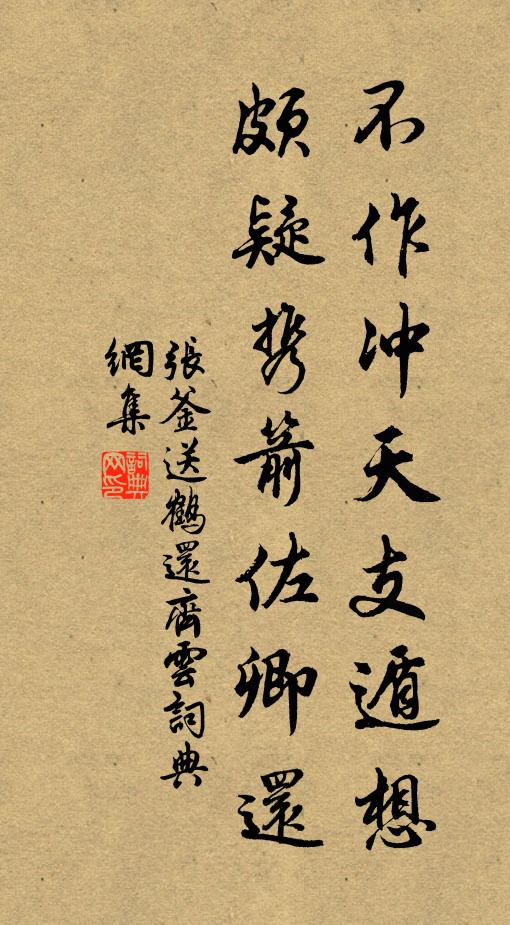 不作冲天支遁想
頗疑携箭佐卿還
張釜送鶴還齊雲詞典
網集
詞典
网印